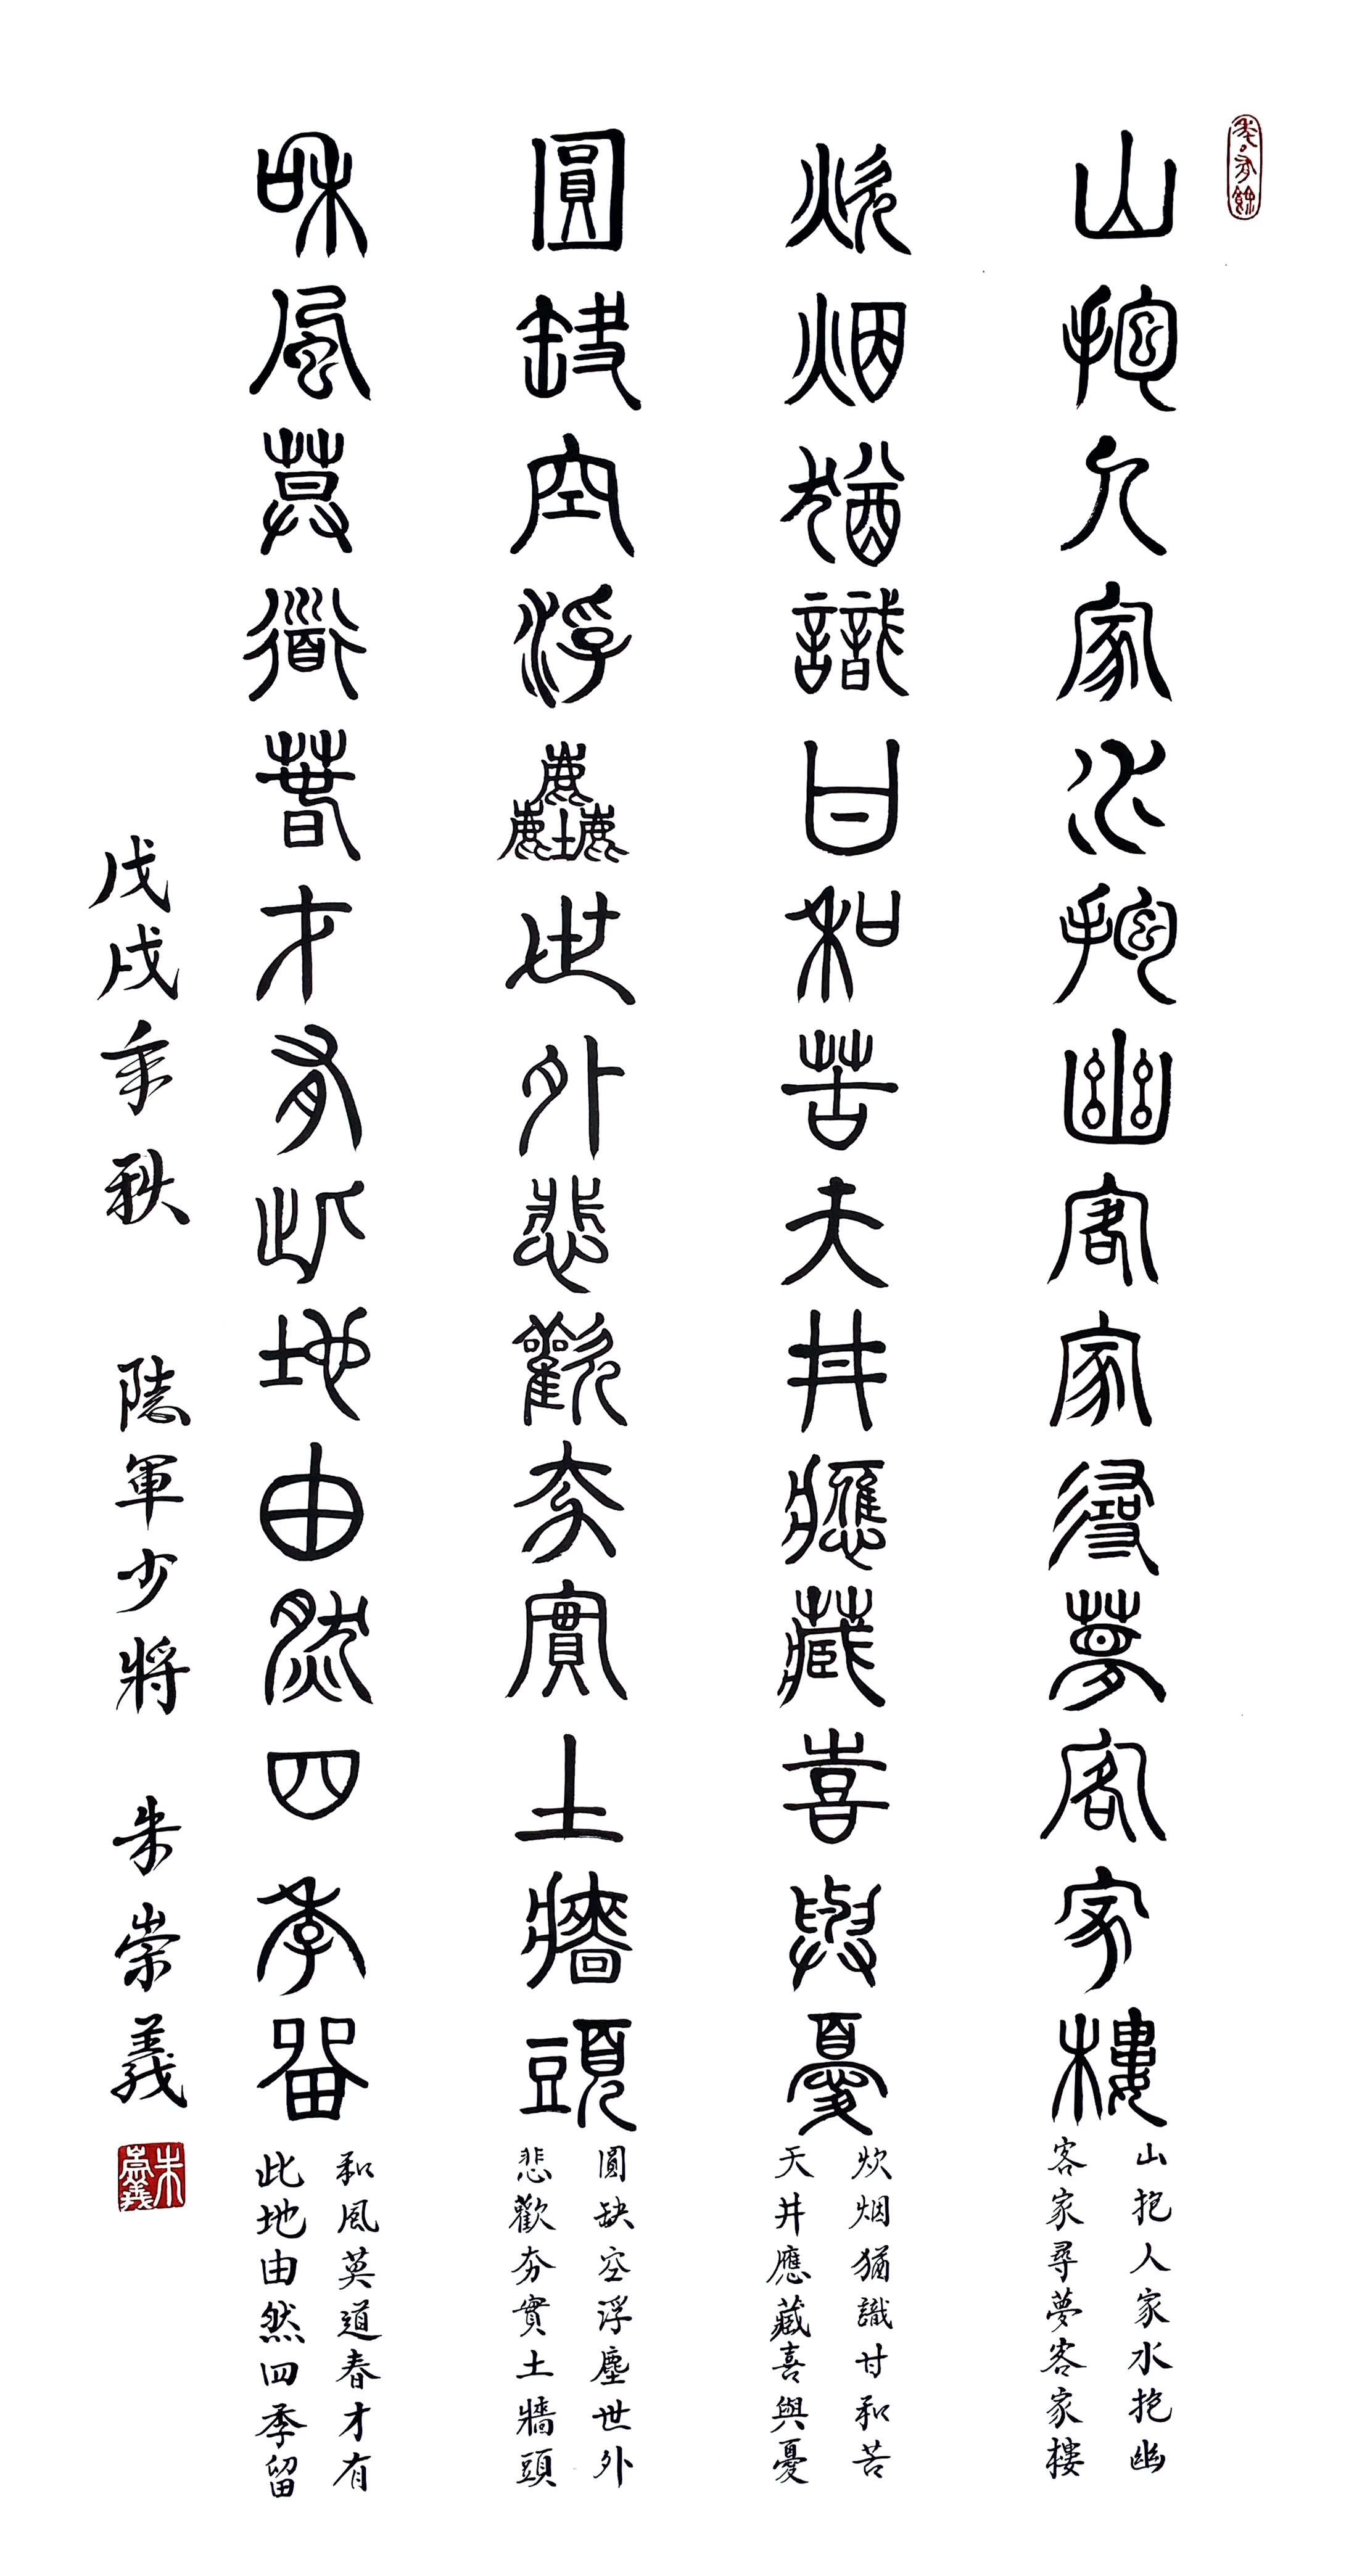 年年有餘
山抱人家水抱幽客家尋夢客家樓
炊烟猶識甘和苦天井應藏喜與憂
圓缺空浮塵世外悲歡夯實土牆頭
和風莫道春才有此地由然四季留
山抱人家水抱幽
客家尋夢客家樓
炊烟猶識甘和苦
天井應藏喜與憂
圓缺空浮塵世外
悲歡夯實土牆頭
和風莫道春才有
此地由然四季留
戊戌年秋 陸軍少將 朱崇義
朱崇義